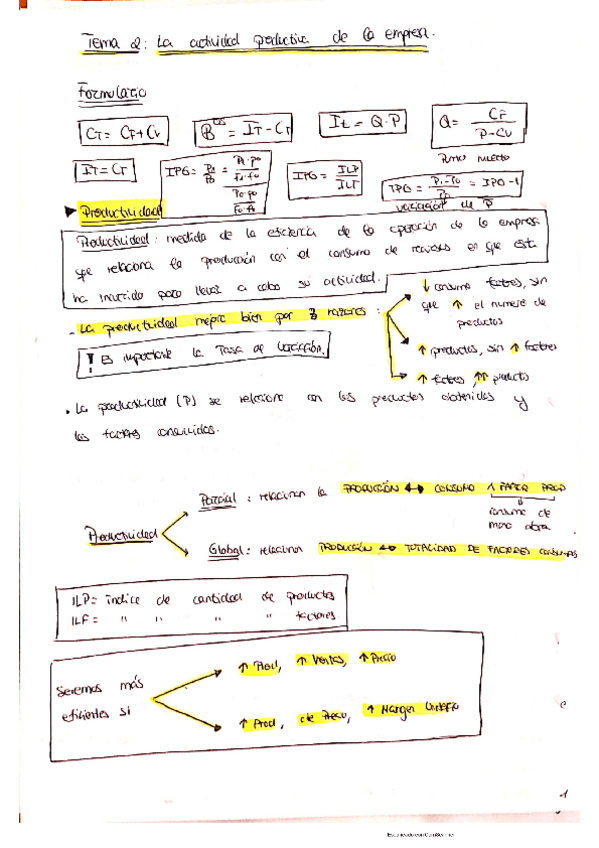 Tema 2: La actividad productiva de la empresa.
Formulario
CT = CF + CV
Bº = IT - CT
It = Q · P
Q = CF / P - CV
Punto muerto
IT = CT
IPG = P1 / P0 =
IPG = ILP / ILF
TPG = P1 - P0 / P0 = IPG - 1
variación de P
Productividad
Productividad: medida de la eficiencia de la operación de la empresa
que relaciona la producción con el consumo de recursos en que ésta
ha incurrido para llevar a cabo su actividad.
· La productividad mejora bien por 3 razones:
↓ consumo factores, sin
que ↑ el numero de
productos
↑ productos, sin ↑ factores
↑ factores, ↑↑ producto
! Es importante la Tasa de Variación.
· La productividad (P) se relaciona con los productos obtenidos y
los factores consumidos.
Productividad
Parcial: relacionan la PRODUCCIÓN ↔ CONSUMO 1 FACTOR PROD
consumo de
mano obra
Global: relacionan PRODUCCIÓN ↔ TOTALIDAD DE FACTORES
ILP = índice de cantidad de productos
ILF = " " " " factores
Seremos más
eficientes si
↑ Prod, ↑ Ventas, ↑ Precio
↑ Prod, cte Precio, ↑ Margen
1
Escaneado con CamScanner